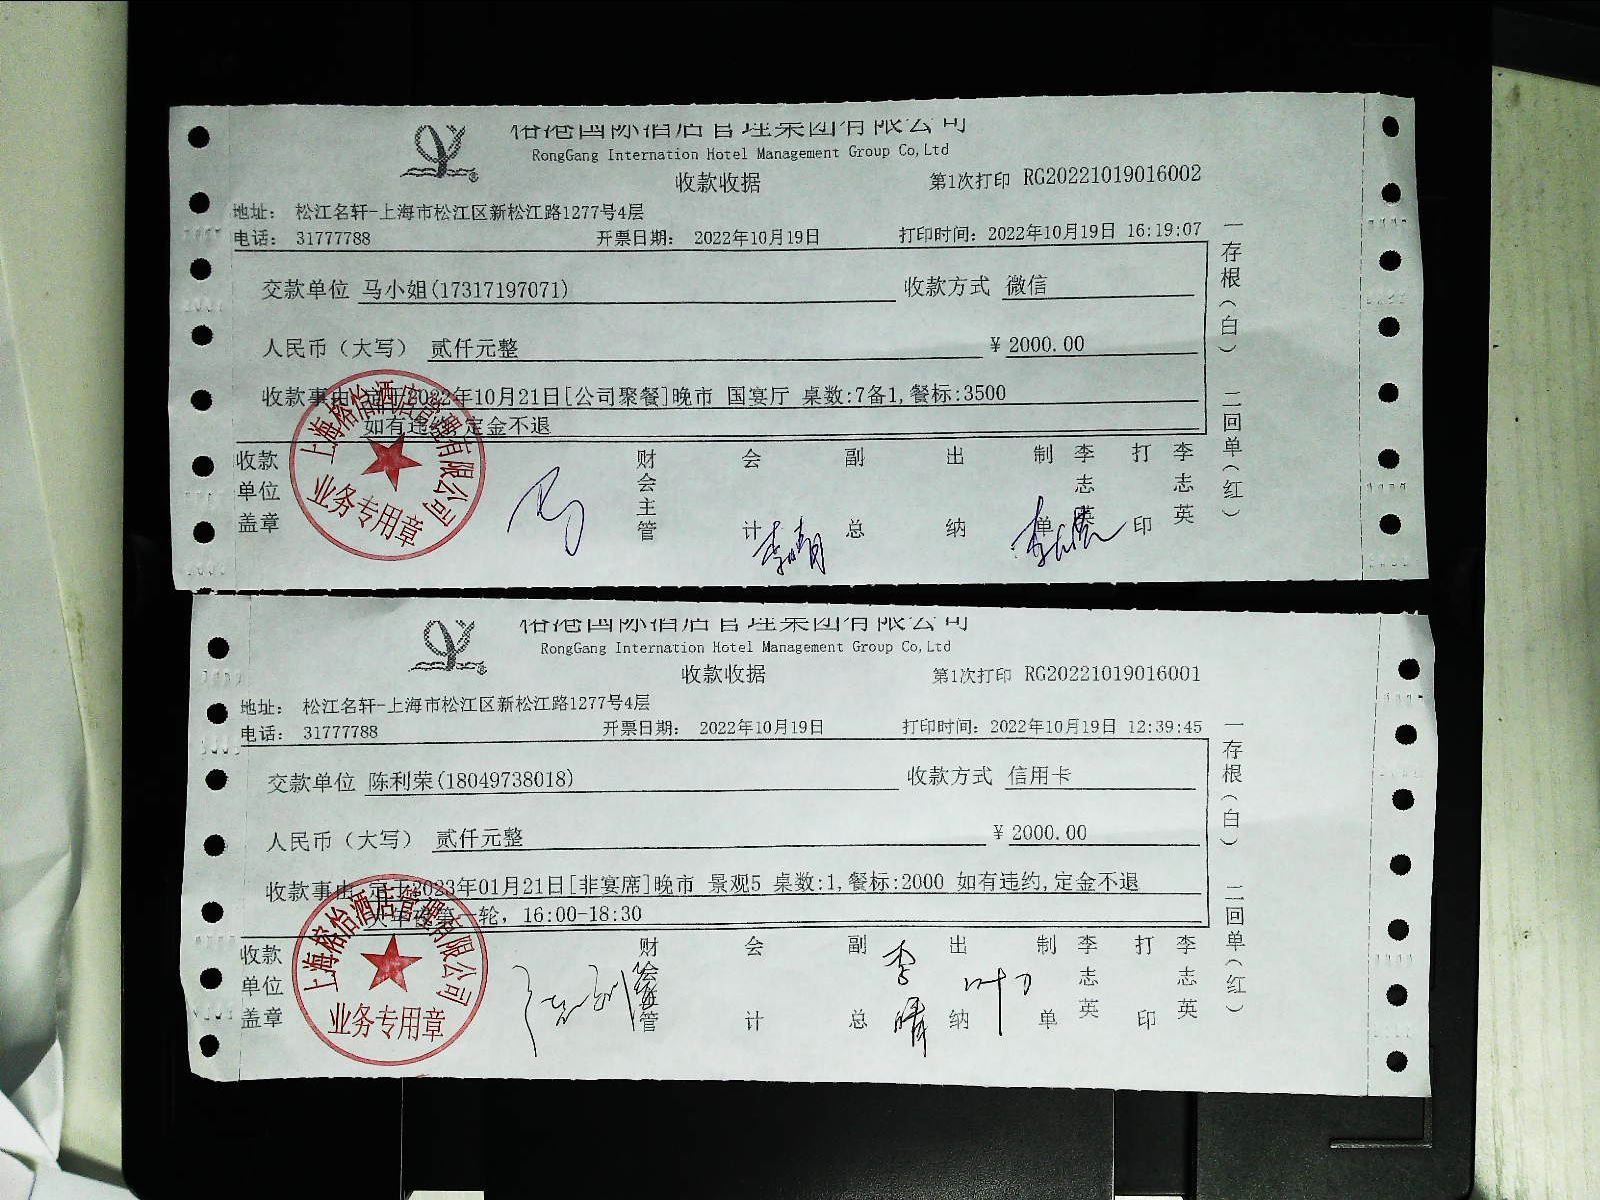 榕港国际酒店管理集团有限公司
RongGang Internation Hotel Management Group Co,Ltd
收款收据 第1次打印 RG20221019016002
地址: 松江名轩-上海市松江区新松江路1277号4层
电话: 31777788 开票日期: 2022年10月19日 打印时间: 2022年10月19日 16:19:07
交款单位 马小姐(17317197071) 收款方式 微信
人民币（大写） 贰仟元整 ¥ 2000.00
收款事由 定于2022年10月21日[公司聚餐]晚市 国宴厅 桌数:7备1,餐标:3500
如有违约,定金不退
收款单位盖章 财会主管 会计 副总 出纳 制单 李志英 打印 李志英
一存根(白) 二回单(红)
上海榕怡酒店管理有限公司
业务专用章
马
李晴
榕港国际酒店管理集团有限公司
RongGang Internation Hotel Management Group Co,Ltd
收款收据 第1次打印 RG20221019016001
地址: 松江名轩-上海市松江区新松江路1277号4层
电话: 31777788 开票日期: 2022年10月19日 打印时间: 2022年10月19日 12:39:45
交款单位 陈利荣(18049738018) 收款方式 信用卡
人民币（大写） 贰仟元整 ¥ 2000.00
收款事由 定于2023年01月21日[非宴席]晚市 景观5 桌数:1,餐标:2000 如有违约,定金不退
大年夜第一轮，16:00-18:30
收款单位盖章 财会主管 会计 副总 出纳 制单 李志英 打印 李志英
一存根(白) 二回单(红)
上海榕怡酒店管理有限公司
业务专用章
李晴